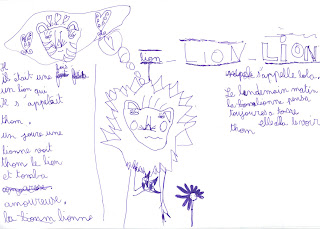 lion
LION
LION
Il
était une fois
un lion qui
s'appelait
thom.
un jour une
lionne voit
thom le lion
et tomba
amoureuse.
la lionne
s'appelle lola.
Le lendemain matin
la lionne pensa
toujours a
elle alla le voir
thom